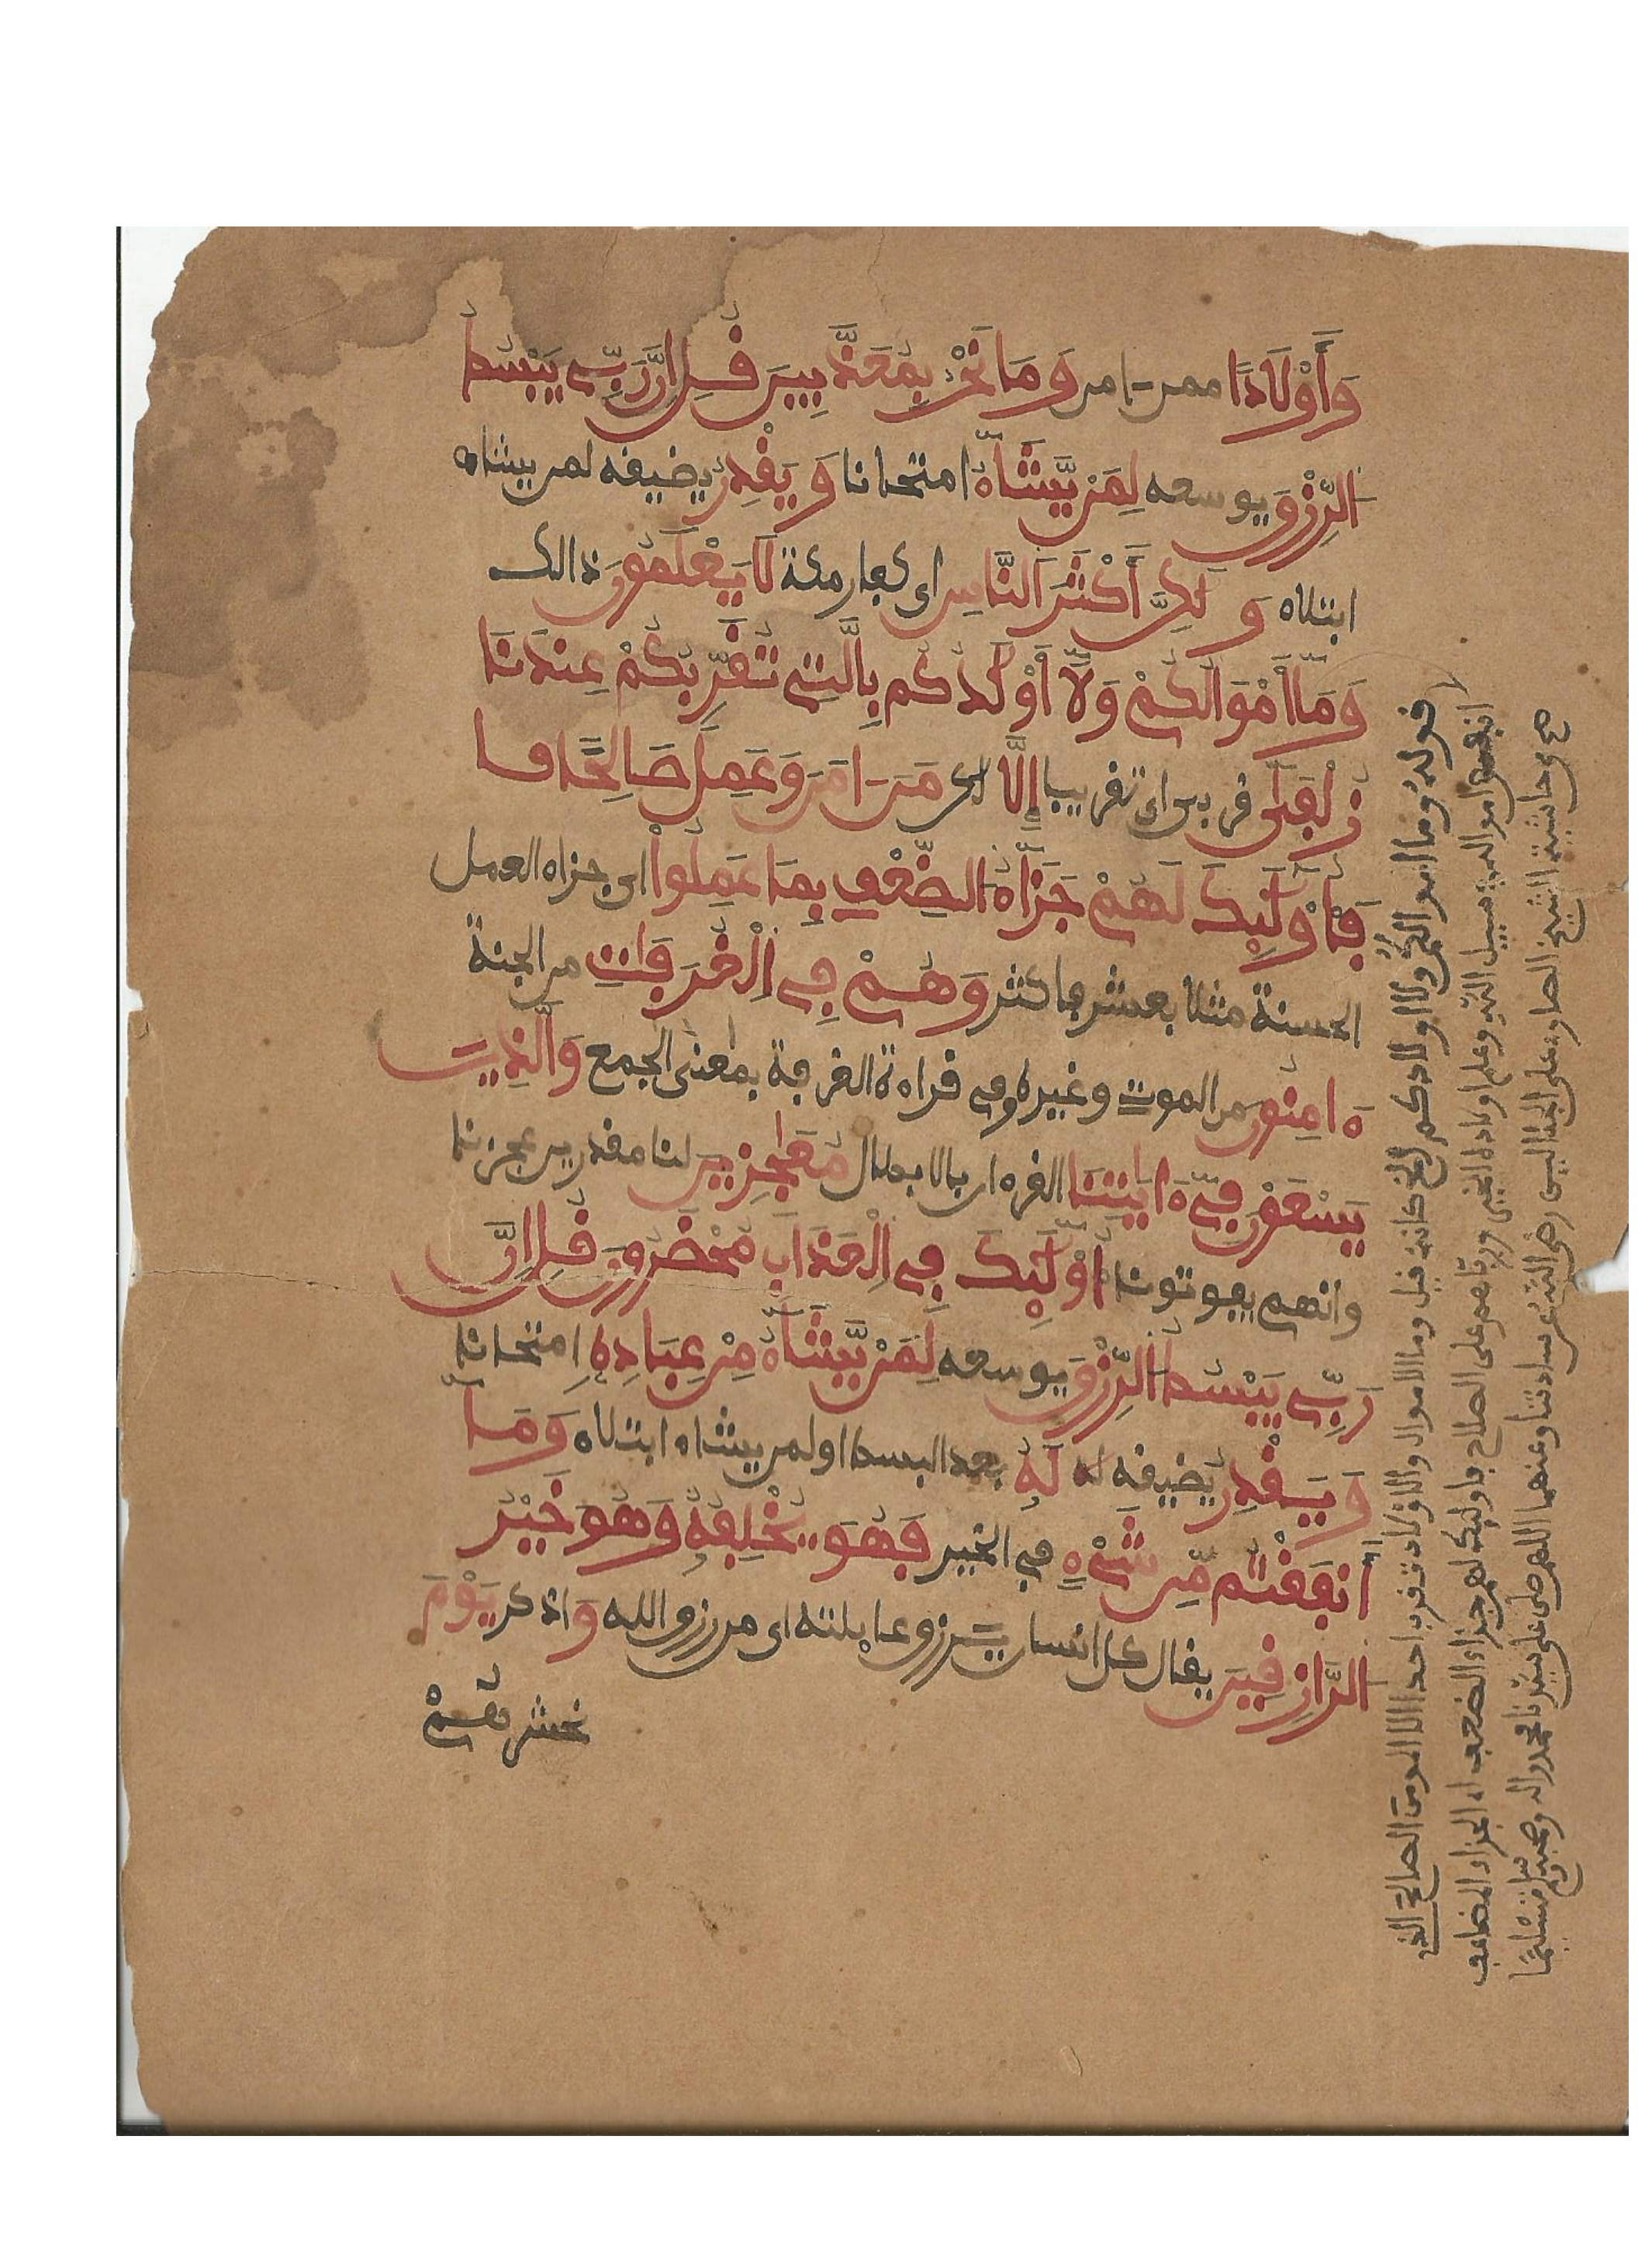 وَأَوْلَادًا ممن ءامن وَمَا نَحْنُ بِمُعَذَّبِينَ قُلْ إِنَّ رَبِّي يَبْسُطُ
الرِّزْقَ يوسعه لِمَنْ يَّشَآءُ امتحانا وَيَقْدِرُ يضيقه لمن يشاء
ابتلاء وَلَٰكِنَّ أَكْثَرَ النَّاسِ اي كفار مكة لَا يَعْلَمُونَ ذالك
وَمَآ أَمْوَٰلُكُمْ وَلَآ أَوْلَٰدُكُم بِالَّتِي تُقَرِّبُكُمْ عِندَنَا
زُلْفَىٰٓ قربى اي تقريبا إِلَّا لكن مَنَ ـامَنَ وَعَمِلَ صَالِحًا فـا
فَأُوْلَٰٓئِكَ لَهُمْ جَزَآءُ الضِّعْفِ بِمَا عَمِلُوا اي جزاء العمل
الحسنة مثلا بعشر فاكثر وَهُمْ فِي الْغُرُفَٰتِ من الجنة
ءَامِنُونَ من الموت وغيره وفي قراءة الغرفة بمعنى الجمع وَالَّذِينَ
يَسْعَوْنَ فِيٓ ءَايَٰتِنَا القرءان بالابطال مُعَٰجِزِينَ لنا مقدرين عجزنا
وانهم يفوتوننا أُوْلَٰٓئِكَ فِي الْعَذَابِ مُحْضَرُونَ قُلْ إِنَّ
رَبِّي يَبْسُطُ الرِّزْقَ يوسعه لِمَنْ يَّشَآءُ مِنْ عِبَادِهِ امتحانا
وَيَقْدِرُ يضيقه له لَهُ بعد البسط او لمن يشاء ابتلاء وَمَآ
أَنفَقْتُم مِّن شَيْءٍ في الخير فَهُوَ يُخْلِفُهُ وَهُوَ خَيْرُ
الرَّازِقِينَ يقال كل انسان يرزق عايلته اي من رزق الله وَ اذكر يَوْمَ
نحشرهُمْ
قوله وما اموالكم ولا اولادكم الخ كانه قيل وما الاموال والاولاد تقرب احدا الا المومن الصالح الذي
انفق امواله في سبيل الله وعلم اولاده الخير ورباهم على الصلاح فاوليك لهم جزاء الضعف اي الجزاء المضاعف
صح من حاشية الشيخ الصاوي على الجلالين رضي الله عن سادتنا وعنهما اللهم صل على سيدنا محمد واله وصحبه وسلم تسليمًا